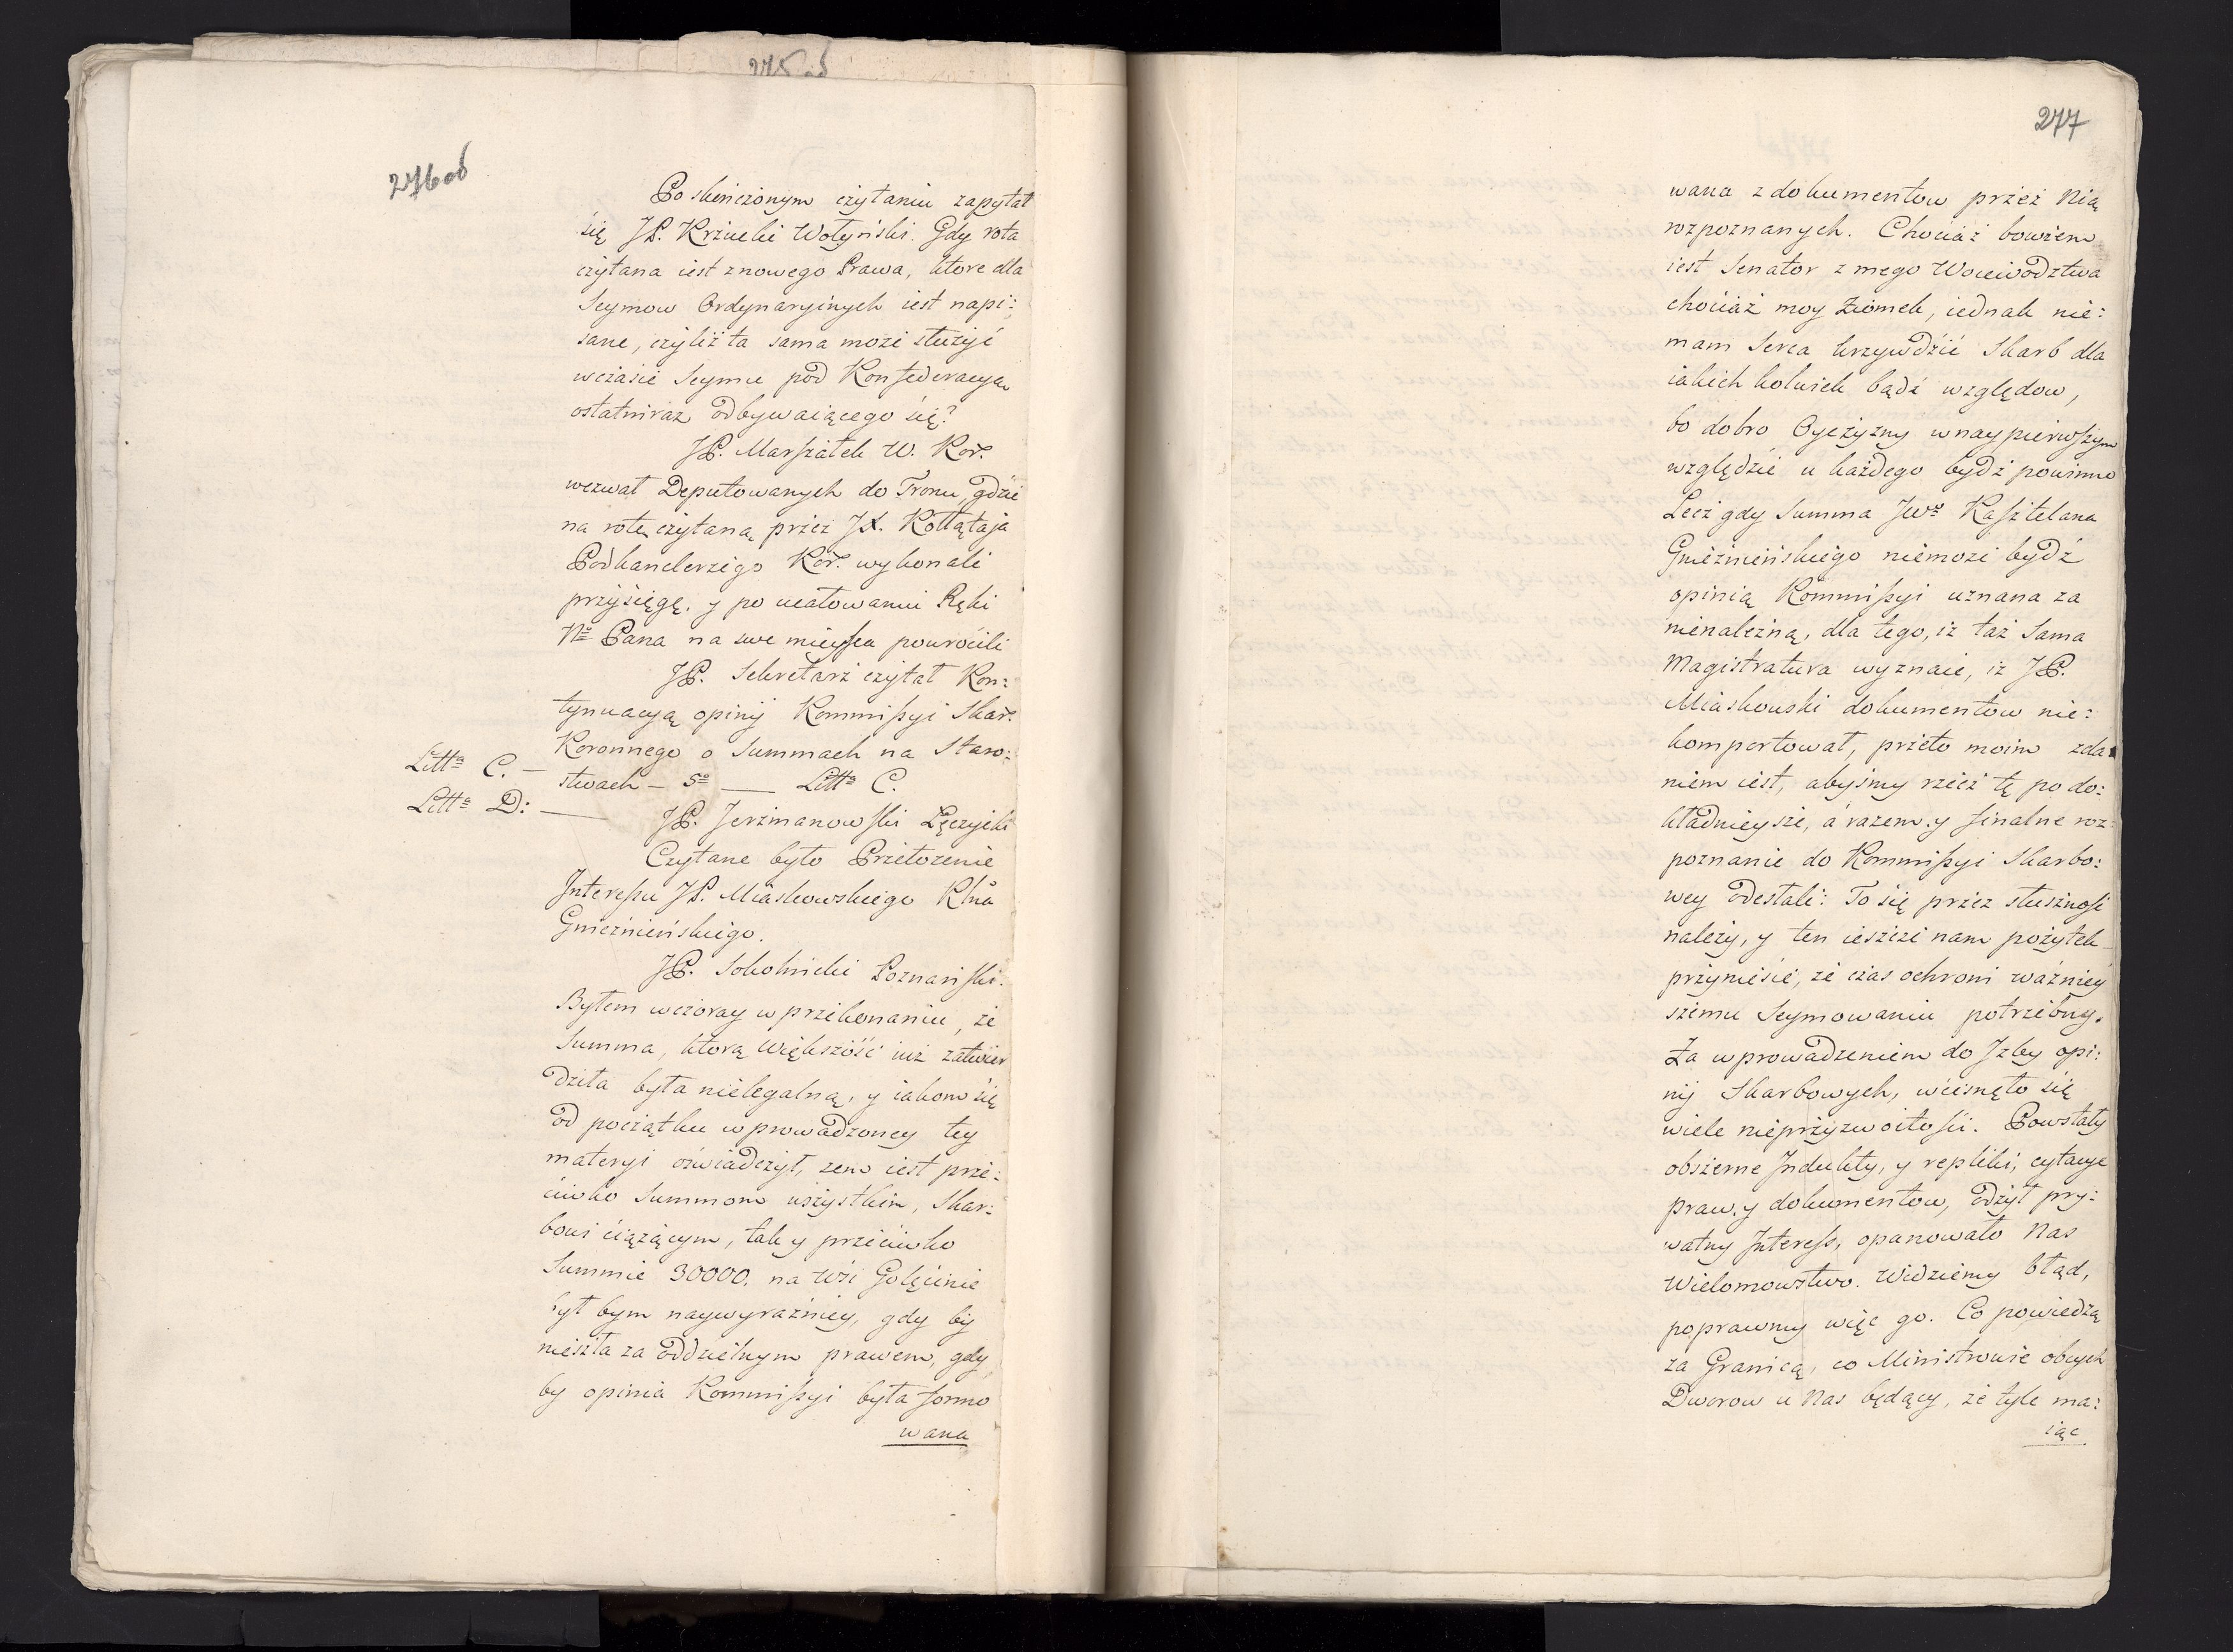 275 od
276 od
Po skończonym czytaniu zapytał
się JP. Krzucki Wołyński. Gdy rota
czytana iest znowego Prawa, ktore dla
Seymow Ordynaryinych iest napi:
sane, czyliż ta sama może służyć
wczasie Seymu pod Konfederacyą
ostatniraz odbywaiącego się?
JP. Marszałek W. Kor.
wezwał Deputowanych do Tronu, gdzie
na rotę czytaną przez JX. Kołłątaja
Podkanclerzego Kor. wykonali
przysięgę, y po ucałowaniu Ręki
Nº Pana na swe mieysca powrócili
JP. Sekretarz czytał Kon:
tynuacyą opinij Kommissyi Skar.
Koronnego o Summach na Staro:
Litt.ª C. – stwach – 5º — Litt.ª C.
Litt.ª D: — JP. Jerzmanowski Łęczycki
Czytane było Przełożenie
Interessu JP. Miaskowskiego Kłna
Gnieźnieńskiego.
JP. Sokolnicki Poznański.
Byłem wczoray w przekonaniu, że
Summa, ktorą większość iuż zatwier
dziła była nielegalną, y iakom się
od początku wprowadzoney tey
materyi oświadczył, żem iest prze:
ciwko Summom wszystkim, Skar:
bowi ciążącym, tak y przeciwko
Summie 30000. na Wsi Golęcinie
był bym naywyraźniey, gdy by
nieszła za oddzielnym prawem, gdy
by opinia Kommissyi była formo
wana
277
wana z dokumentow przez Nią
rozpoznanych. Chociaż bowiem
iest Senator z mego Woiewodztwa
chociaż moy Ziomek, iednak nie:
mam Serca krzywdzić Skarb dla
iakich kolwiek bądź względow,
bo dobro Oyczyzny w naypierwszym
względzie u każdego bydź powinno
Lecz gdy Summa JWº Kasztelana
Gnieźnieńskiego niemoże bydź
opinią Kommissyi uznana za
nienależną, dla tego, iż taż Sama
Magistratura wyznaie, iż JP.
Miaskowski dokumentow nie:
komportował, przeto moim zda
niem iest, abyśmy rzecz tę po do:
kładnieysze, á razem y finalne roz:
poznanie do Kommissyi Skarbo:
wey odesłali: To się przez słuszność
należy, y ten ieszcze nam pożytek
przyniesie, że czas ochroni ważniey
szemu Seymowaniu potrzebny.
Za wprowadzeniem do Izby opi:
nij Skarbowych, wcisnęło się
wiele nieprzyzwoitości. Powstały
obszerne Indukty, y repliki, cytacye
praw y dokumentow, odżył pry:
watny Interess, opanowało Nas
Wielomowstwo. Widziemy błąd,
poprawmy więc go. Co powiedzą
za Granicą, co Ministrowie obcych
Dworow u Nas będący, że tyle ma:
iąc